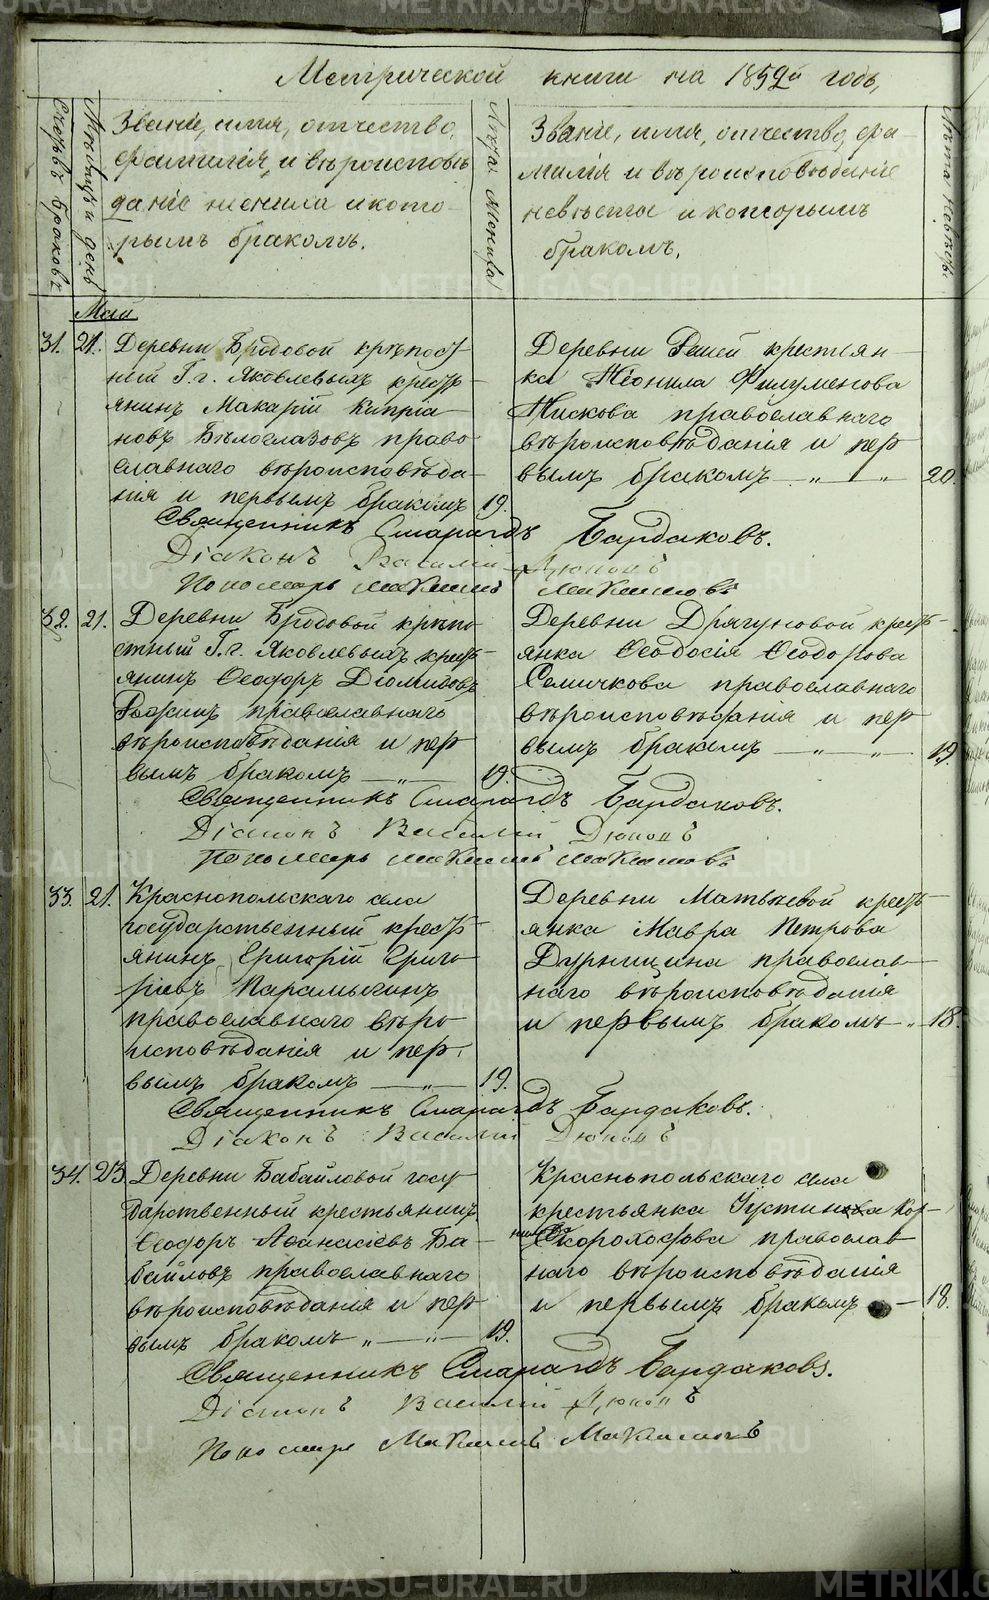 Метрической книги на 1859й годъ,
Счетъ браковъ
Мѣсяцъ и день
Званіе, имя, отчество,
фамилія, и вѣроисповѣ
даніе жениха и кото-
рымъ бракомъ.
Лѣта жениха
Званіе, имя, отчество, фа-
милія и вѣроисповѣданіе
невѣсты и которымъ
бракомъ.
Лѣта невѣсты.
Май
31. 21. Деревни Бродовой крѣпост
ный Г.г. Яковлевыхъ крест-
янинъ Макарій Кипріа-
новъ Бѣлоглазовъ право
славнаго вѣроисповѣда-
нія и первымъ бракомъ 19.
Деревни Решей крестьян-
ка Неонила Филуменова
Пискова православнаго
вѣроисповѣданія и пер
вымъ бракомъ — „ — „ — 20.
Священникъ Смарагдъ Бардаковъ.
Діаконъ Василій Дюпонъ
Пономарь Максимъ Максимовъ
32. 21. Деревни Бродовой крѣпо
стный Г.г. Яковлевыхъ крест-
янинъ Ѳеодоръ Діомидовъ
православнаго
вѣроисповѣданія и пер
вымъ бракомъ — „ — 19
Деревни Дрягуновой крест-
янка Ѳеодосія Ѳеодорова
Семичкова православнаго
вѣроисповѣданія и пер
вымъ бракомъ — „ — „ — 19.
Священникъ Смарагдъ Бардаковъ.
Діаконъ Василій Дюпонъ
Пономарь Максимъ Максимовъ
33. 21. Краснопольскаго села
государственный крест
янинъ Григорій Григо
рьевъ Парамыгинъ
православнаго вѣро
исповѣданія и пер
вымъ бракомъ — „ — 19.
Деревни Матвеевой крест-
янка Мавра Петрова
Дурницина православ-
наго вѣроисповѣданія
и первымъ бракомъ — „ 18.
Священникъ Смарагдъ Бардаковъ.
Діаконъ Василій Дюпонъ
34. 23. Деревни Бабайловой госу
дарственный крестьянинъ
Ѳеодоръ Аѳанасіевъ Ба-
байловъ православнаго
вѣроисповѣданія и пер
вымъ бракомъ „ — „ — 19.
Краснопольскаго села
крестьянка Устинова Кор-
Скороходова православ
наго вѣроисповѣданія
и первымъ бракомъ — 18.
Священникъ Смарагдъ Бардаковъ.
Діаконъ Василій Дюпонъ
Пономарь Максимъ Максимовъ
METRIKI.GASO-URAL.RU